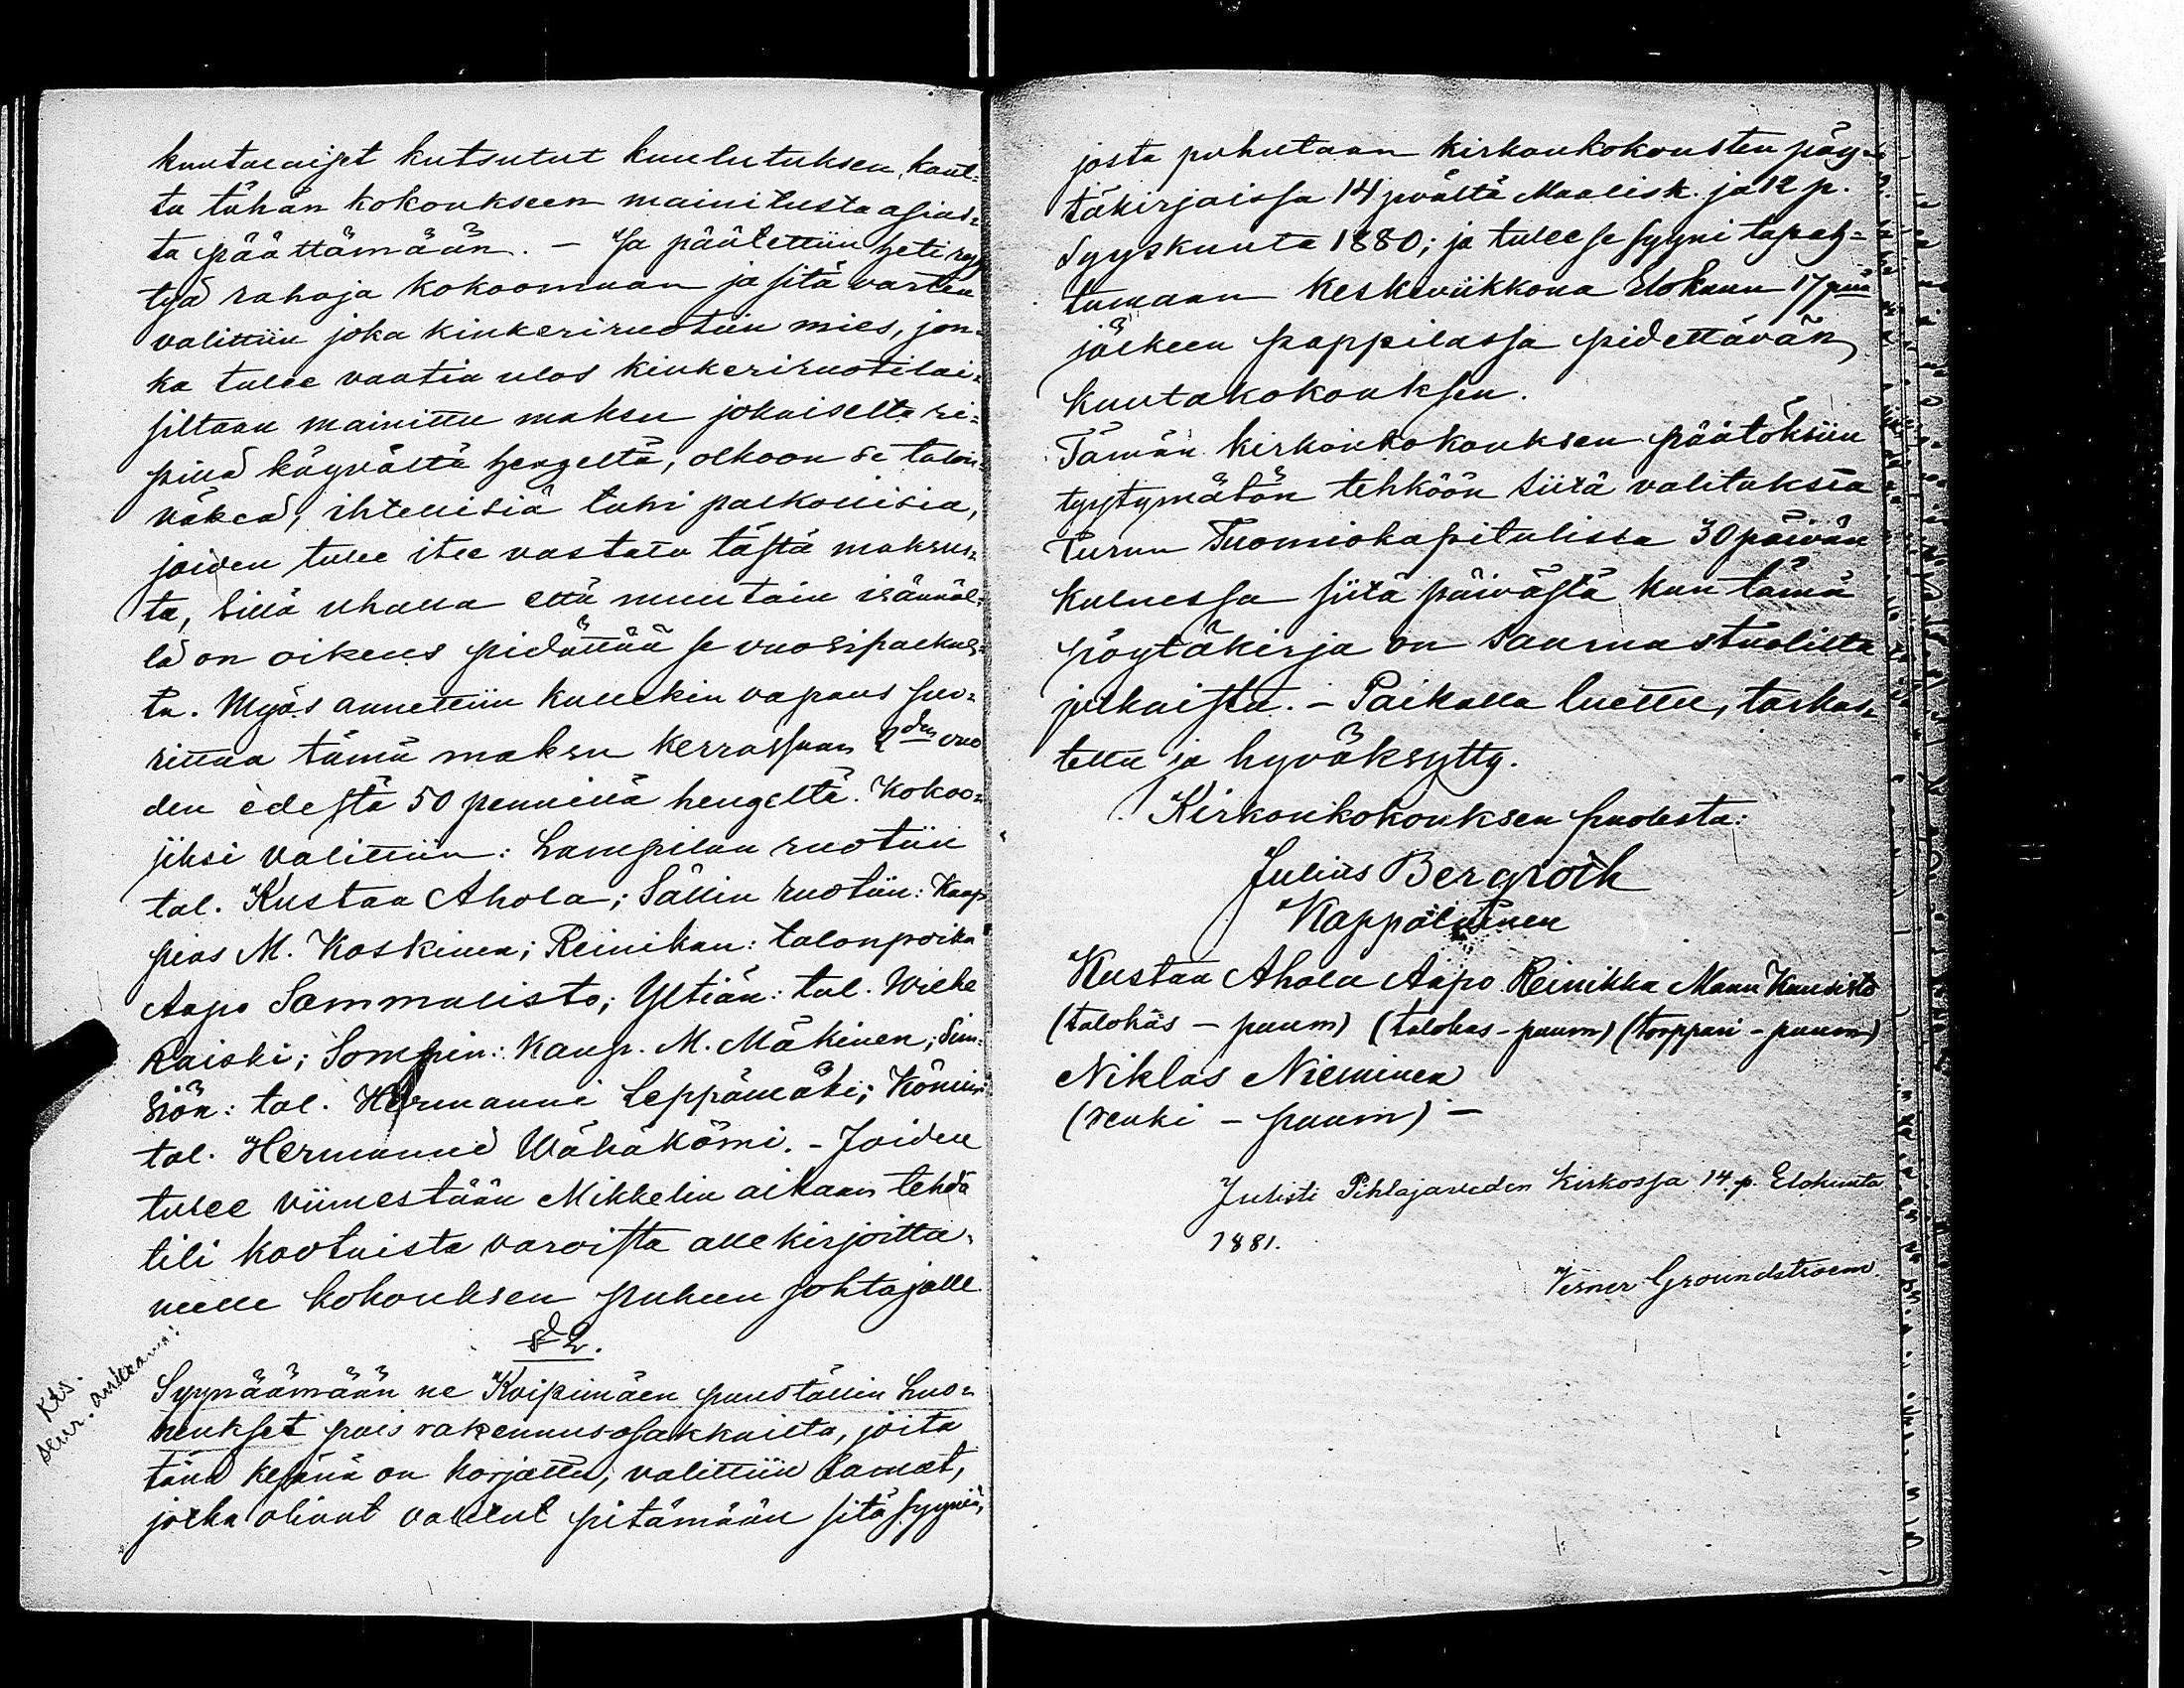 kuntalaiset kutsutut kuulutuksen kaut-
ta tähän kokoukseen mainitusta asias-
ta päättämään. – Ja päätettiin heti ryh-
tyä rahoja kokoomaan ja sitä varten
valittiin joka kinkeriruotiin mies, jon-
ka tulee vaatia ulos kinkeriruotilai-
siltaan mainittu maksu jokaiselta ri-
pillä käyvältä hengeltä, olkoon se talon-
väkeä, ihtellisiä tahi palkollisia,
joiden tulee itse vastata tästä maksus-
ta, sillä uhalla että muutoin isännäl-
lä on oikeus pidättää se vuosipalkas-
ta. Myös annettiin kullekin vapaus suo-
rittaa tämä maksu kerrassaan 2den vuo
den edestä 50 pennillä hengeltä. Kokoo-
jiksi valittiin: Lampilan ruotiin
tal. Kustaa Ahola; Sällin ruotiin: Kaup
pias M. Koskinen; Reinikan: talonpoika
Aapo Sammalisto; Yltiän: tal. Wilhe
Raiski; Sompin: Kaup. M. Mäkinen; Sim-
siön: tal. Hermanni Leppämäki; Kömin:
tal. Hermanni Wähäkömi. – Joiden
tulee viimestään Mikkelin aikaan tehdä
tili kootuista varoista allekirjoitta-
neelle kokouksen puheen johtajalle.
§ 2.
Kts.
seur. aukeama:
Syynäämään ne Koipimäen puuställin huo-
neukset pois rakennusosakkailta, joita
tänä kesänä on korjattu, valittiin samat,
jotka olivat valitut pitämään sitä syyniä,
josta puhutaan kirkonkokousten pöy-
täkirjaissa 14 pvältä Maalisk. ja 12 p.
Syyskuuta 1880; ja tulee se syyni tapah-
tumaan keskiviikkona Elokuun 17 pnä
jälkeen pappilassa pidettävän
kuntakokouksen.
Tämän kirkonkokouksen päätöksiin
tyytymätön tehköön siitä valituksia
Turun Tuomiokapitulissa 30 päivän
kuluessa siitä päivästä kun tämä
pöytäkirja on saarnastuolilta
julkaistu. – Paikalla luettu, tarkas-
tettu ja hyväksytty.
Kirkonkokouksen puolesta:
Julius Bergroth
Kappalainen
Kustaa Ahola Aapo Reinikka Manu Kuusisto
(talokas – puum) (talokas – puum) (torppari – puum)
Niklas Nieminen
(renki – puum) –
Julisti Pihlajaveden Kirkossa 14 p. Elokuuta
1881.
Verner Groundstroem.